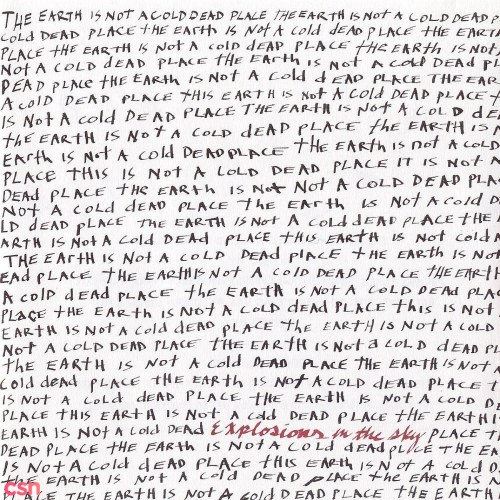 THE EARTH IS NOT A COLD DEAD PLACE THE EARTH IS NOT A COLD DEAD P
COLD DEAD PLACE THE EARTH IS NOT A COLD DEAD PLACE THE EARTH
PLACE THE EARTH IS NOT A COLD DEAD PLACE THE EARTH IS NOT
NOT A COLD DEAD PLACE THE EARTH IS NOT A COLD DEAD PL
DEAD PLACE THE EARTH IS NOT A COLD DEAD PLACE THE EAR
A COLD DEAD PLACE THIS EARTH IS NOT A COLD DEAD PLACE
IS NOT A COLD DEAD PLACE THE EARTH IS NOT A COLD DE
THE EARTH IS NOT A COLD DEAD PLACE THE EARTH IS
EARTH IS NOT A COLD DEAD PLACE THE EARTH IS NOT A COLD
PLACE THIS IS NOT A COLD DEAD PLACE IT IS NOT A
DEAD PLACE THE EARTH IS NOT NOT A COLD DEAD PLA
NOT A COLD DEAD PLACE THE EARTH IS NOT A COLD D
LD DEAD PLACE THE EARTH IS NOT A COLD DEAD PLACE THE
ARTH IS NOT A COLD DEAD PLACE THIS EARTH IS NOT COLD
THE EARTH IS NOT A COLD DEAD PLACE THE EARTH IS NO
EAD PLACE THE EARTH IS NOT A COLD DEAD PLACE THE EARTH
A COLD DEAD PLACE THE EARTH IS NOT A COLD DEAD PLA
PLACE THE EARTH IS NOT A COLD DEAD PLACE THIS IS NOT
EARTH IS NOT A COLD DEAD PLACE THE EARTH IS NOT A COLD
NOT A COLD DEAD PLACE THE EARTH IS NOT A COLD DEAD PL
THE EARTH IS NOT A COLD DEAD PLACE THE EARTH IS NOT A
COLD DEAD PLACE THE EARTH IS NOT A COLD DEAD PLACE T
IS NOT A COLD DEAD PLACE THE EARTH IS NOT A COLD D
PLACE THIS EARTH IS NOT A COLD DEAD PLACE THE EARTH I
EARTH IS NOT A COLD DEAD Explosions in the sky PLACE T
DEAD PLACE THE EARTH IS NOT A COLD DEAD PLACE THE EA
IS NOT A COLD DEAD PLACE THIS EARTH IS NOT A COLD D
THE EARTH IS NOT A COLD DEAD PLACE THE EARTH IS
PLACE THE EARTH IS NOT A COLD DEAD PLACE THE EAR
csn